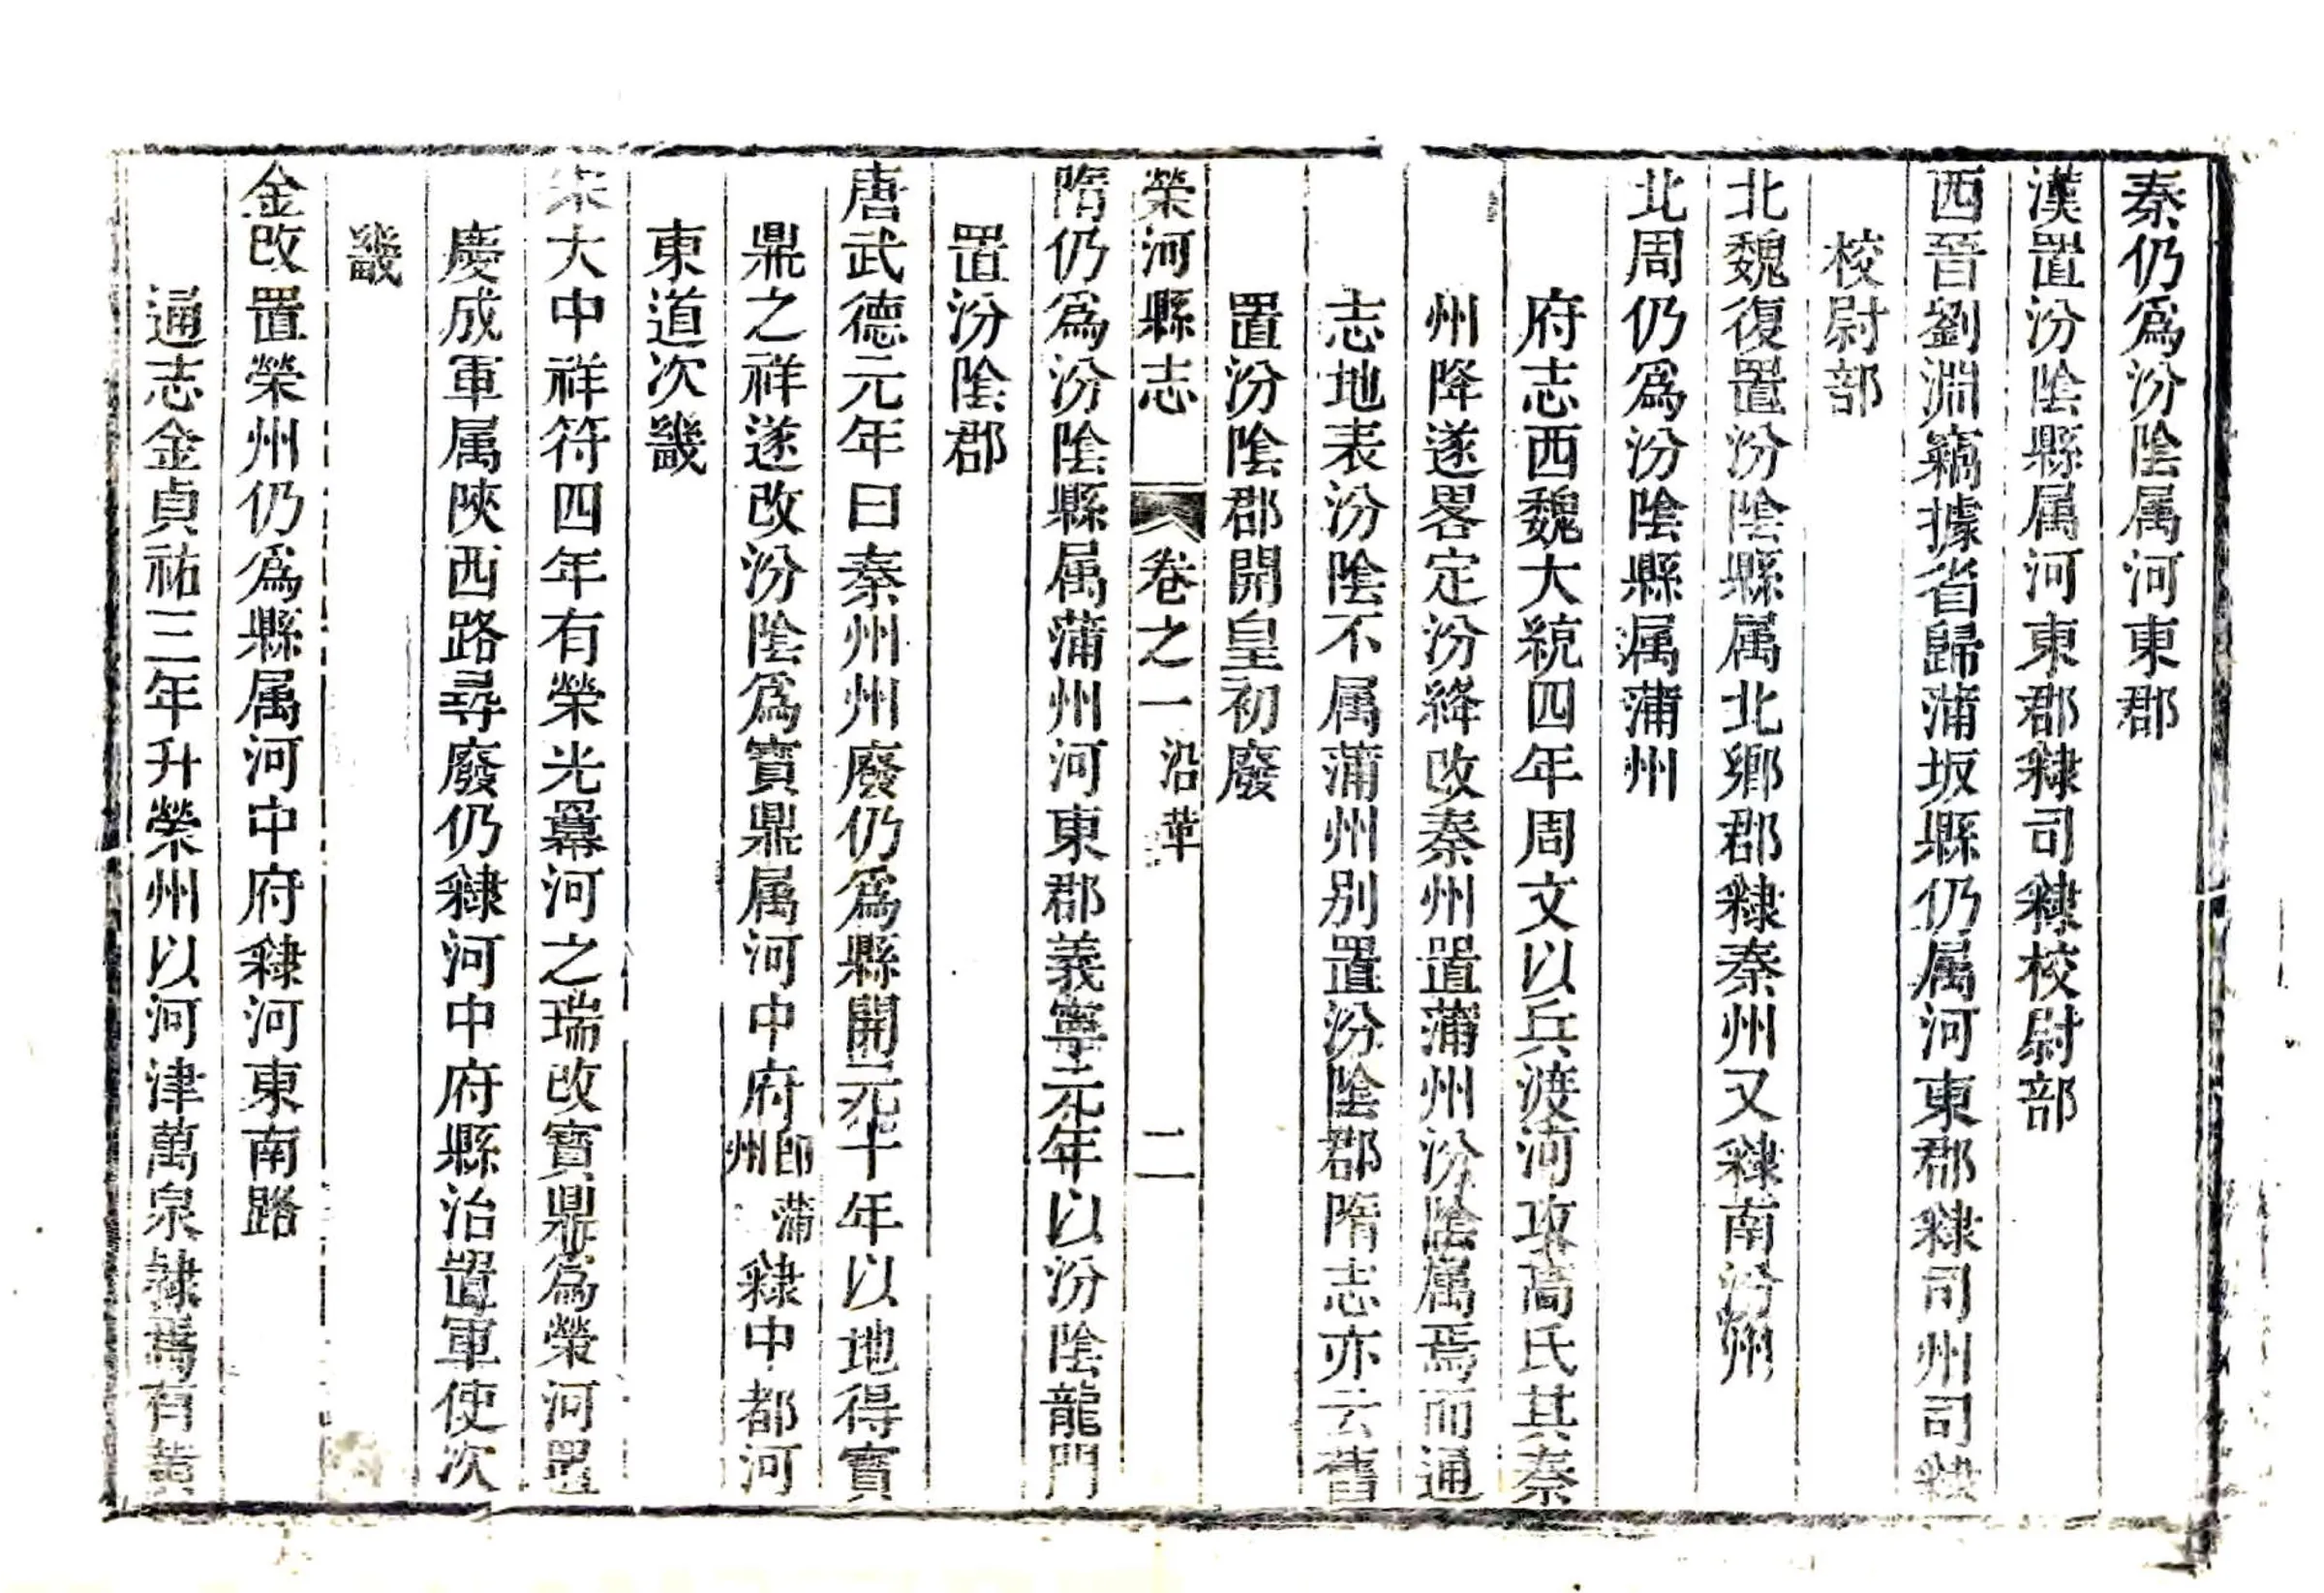 秦仍爲汾陰属河東郡
漢置汾陰縣属河東郡隸司隸校尉部
西晉劉淵竊據省歸蒲坂縣仍属河東郡隸司州司隸
校尉部
北魏復置汾陰縣属北郷郡隸秦州又隸南汾州
北周仍爲汾陰縣属蒲州
府志西魏大統四年周文以兵渡河攻高氏其秦
州降遂畧定汾絳改秦州置蒲州汾陰属焉而通
志地表汾陰不属蒲州别置汾陰郡隋志亦云舊
置汾陰郡開皇初廢
榮河縣志 卷之一 沿革 二
隋仍爲汾陰縣属蒲州河東郡義寧元年以汾陰龍門
置汾陰郡
唐武德元年曰秦州州廢仍爲縣開元十年以地得寳
鼎之祥遂改汾陰爲寳鼎属河中府即蒲州隸中都河
東道次畿
宋大中祥符四年有榮光羃河之瑞改寳鼎爲榮河置
慶成軍属陜西路尋廢仍隸河中府縣治置軍使次
畿
金改置榮州仍爲縣属河中府隸河東南路
通志金貞祐三年升榮州以河津萬泉隸焉有黄